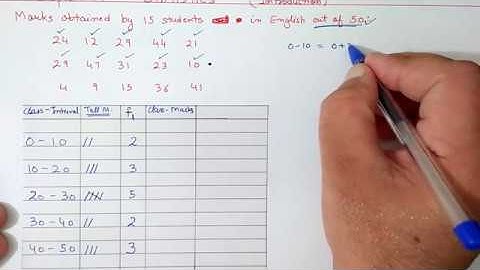 (Introduction)
Marks obtained by 15 students in English out of 50:
24 12 29 44 21
29 47 31 23 10
4 9 15 36 41
0-10 = 0+
Class-Interval Tall M. f₁ Class-Marks
0-10 // 2
10-20 /// 3
20-30 5
30-40 // 2
40-50 /// 3